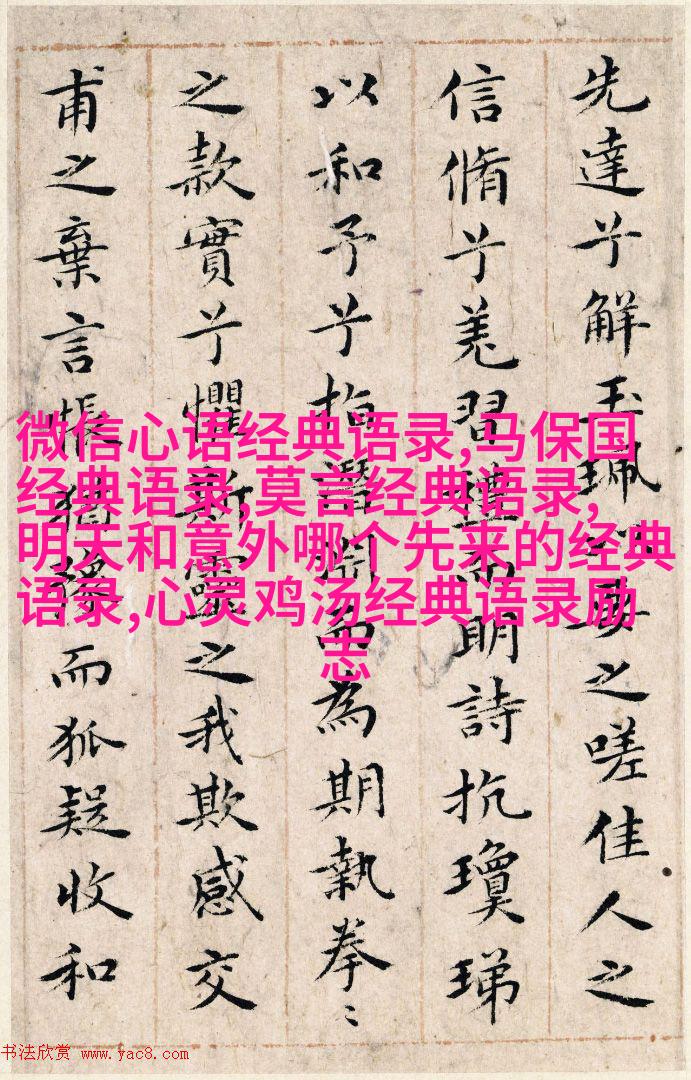 先達兮解玉珮要之嗟佳人之
信脩兮羌習禮而明詩抗瓊珶
以和予兮指潛淵而為期執拳〻
之款實兮懼斯靈之我欺感交
甫之棄言悵猶豫而狐疑收和
微信心语经典语录,马保国
经典语录,莫言经典语录,
明天和意外哪个先来的经典
语录,心灵鸡汤经典语录励
志
书法欣赏 www.yac8.com